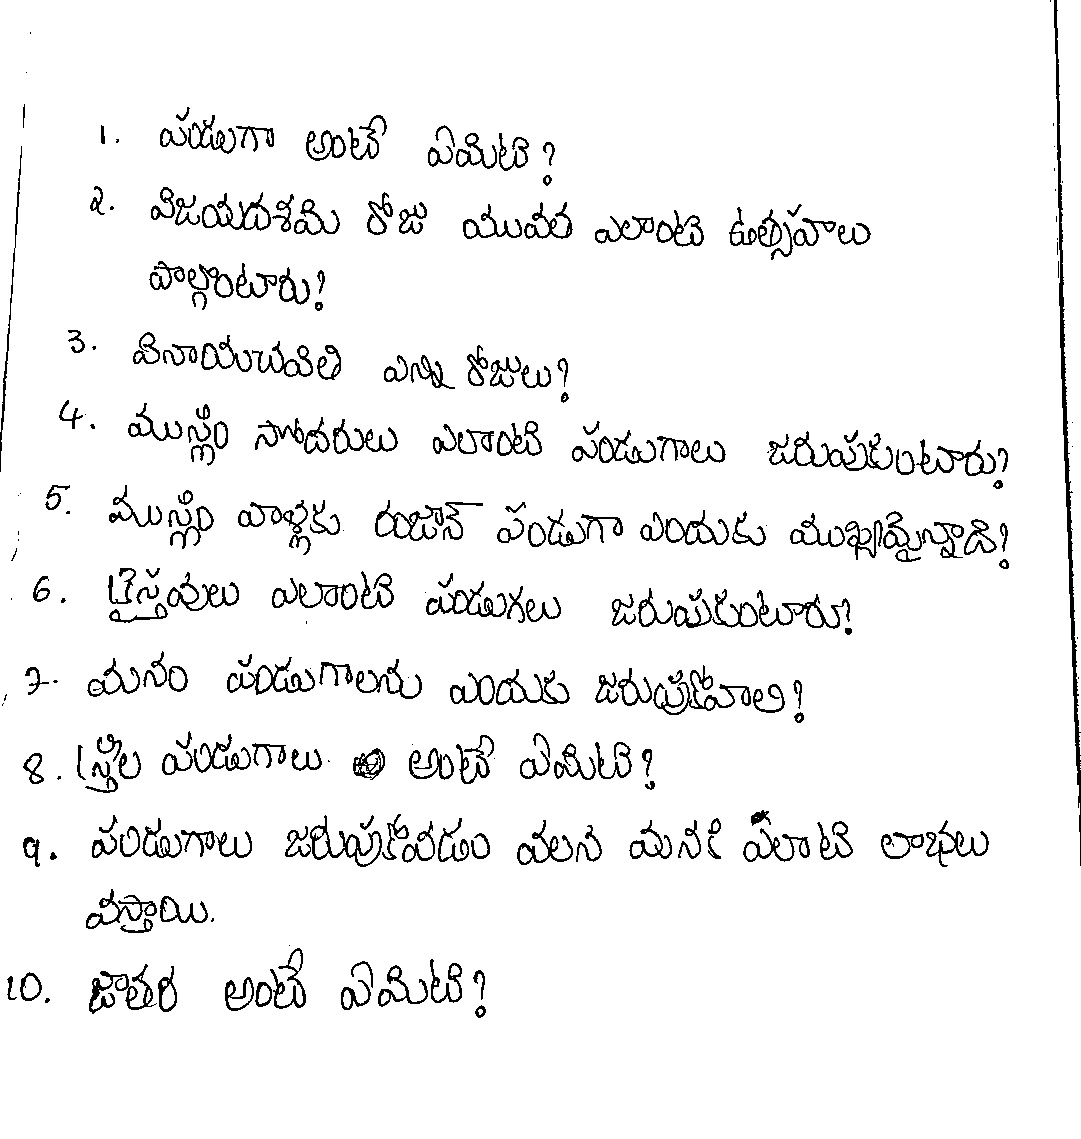 1. పండుగా అంటే ఏమిటి?
2. విజయదశమి రోజు యువత ఎలాంటి ఉత్సహాలు
పాల్గొంటారు?
3. వినాయచవితి ఎన్ని రోజులు?
4. ముస్లిం సోదరులు ఎలాంటి పండుగాలు జరుపుకుంటారు?
5. ముస్లిం వాళ్లకు రంజాన్ పండుగా ఎందుకు ముఖ్యమైన్నాది?
6. క్రైస్తవులు ఎలాంటి పండుగలు జరుపుకుంటారు?
7. మనం పండుగాలను ఎందుకు జరుపుకోవాలి?
8. స్త్రీల పండుగాలు అంటే ఏమిటి?
9. పండుగాలు జరుపుకోవడం వలన మనకి ఏలాటి లాభలు
వస్తాయి.
10. జాతర అంటే ఏమిటి?